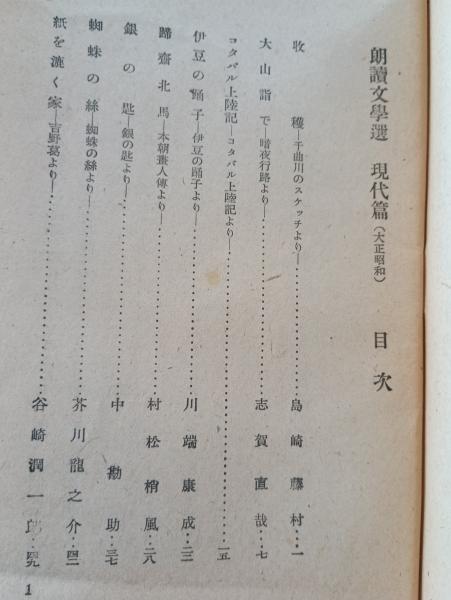 朗讀文學選 現代篇(大正昭和) 目次
收穫―千曲川のスケッチより―島崎藤村…一
大山詣で―暗夜行路より―志賀直哉…七
コタバル上陸記―コタバル上陸記より―一五
伊豆の踊子―伊豆の踊子より―川端康成…二三
蹄齋北馬―本朝畫人傳より―村松梢風…二八
銀の匙―銀の匙より―中勘助…三七
蜘蛛の絲―蜘蛛の絲より―芥川龍之介…四二
紙を漉く家―吉野葛より―谷崎潤一郎…四九
1